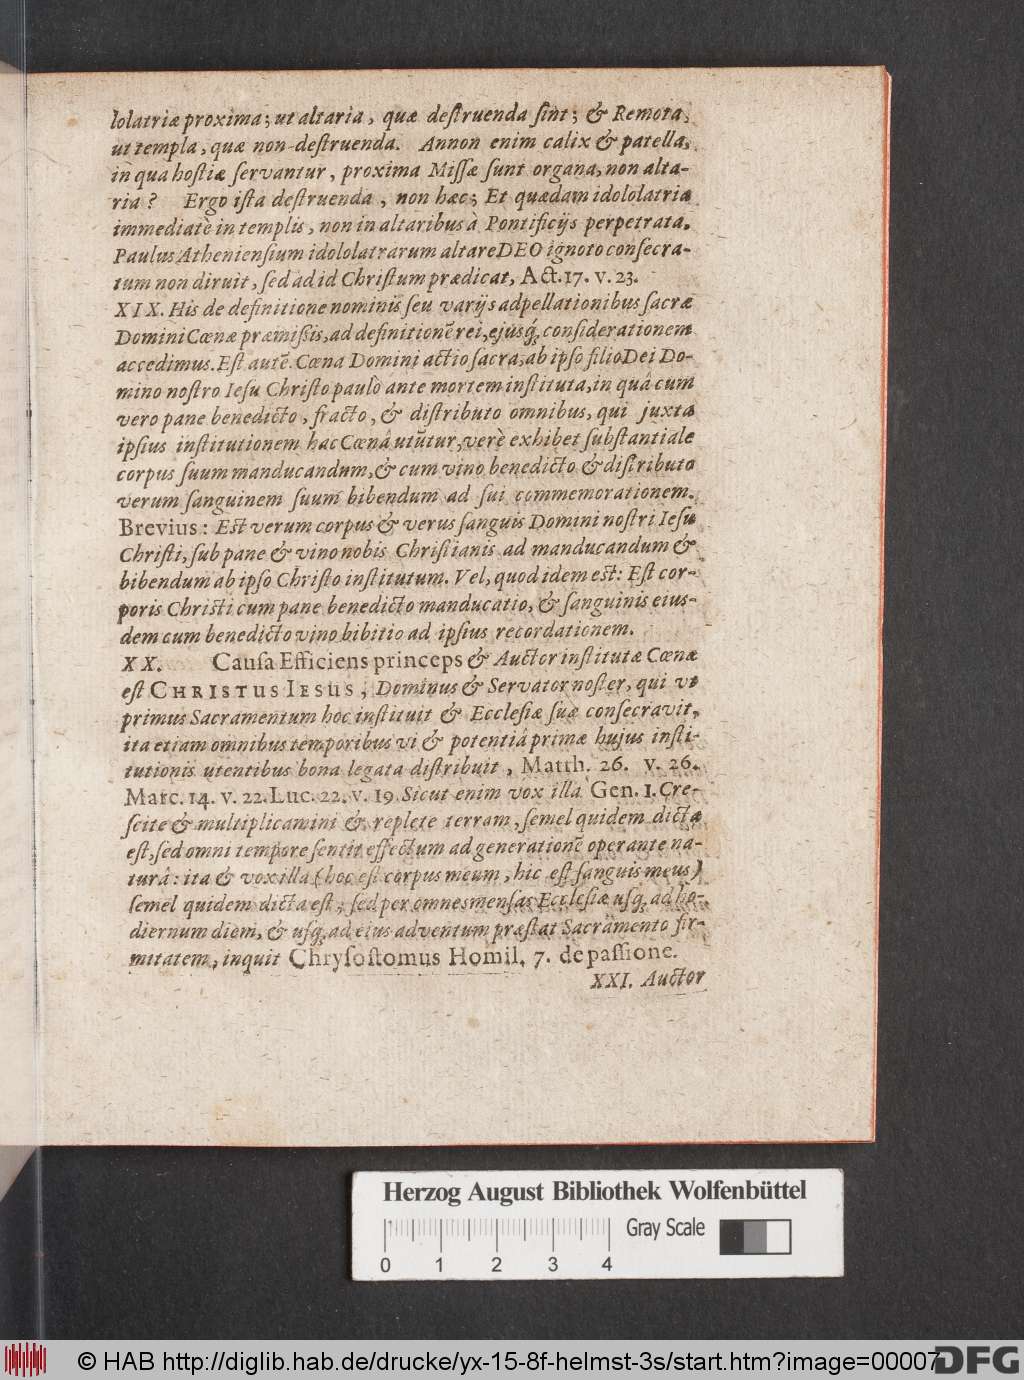 lolatriæ proxima; ut altaria, quæ destruenda sint; & Remota,
ut templa, quæ non destruenda. Annon enim calix & patella,
in qua hostiæ servantur, proxima Missæ sunt organa, non alta-
ria? Ergo ista destruenda, non hæc; Et quædam idololatria
immediatè in templis, non in altaribus à Pontificijs perpetrata.
Paulus Atheniensium idololatrarum altare DEO ignoto consecra-
tum non diruit, sed ad id Christum prædicat, Act. 17. v. 23.
XIX. His de definitione nominis seu varijs adpellationibus sacræ
Domini Cœnæ præmissis, ad definitionē rei, ejusq́; considerationem
accedimus. Est autē Cœna Domini actio sacra, ab ipso filio Dei Do-
mino nostro Iesu Christo paulò ante mortem instituta, in quâ cum
vero pane benedicto, fracto, & distributo omnibus, qui juxta
ipsius institutionem hac Cœnâ utūtur, verè exhibet substantiale
corpus suum manducandum, & cum vino benedicto & distributo
verum sanguinem suum bibendum ad sui commemorationem.
Brevius: Est verum corpus & verus sanguis Domini nostri Iesu
Christi, sub pane & vino nobis Christianis ad manducandum &
bibendum ab ipso Christo institutum. Vel, quod idem est: Est cor-
poris Christi cum pane benedicto manducatio, & sanguinis eius-
dem cum benedicto vino bibitio ad ipsius recordationem.
XX. Causa Efficiens princeps & Auctor institutæ Cœnæ
est CHRISTUS IESUS, Dominus & Servator noster, qui vt
primus Sacramentum hoc instituit & Ecclesiæ suæ consecravit,
ita etiam omnibus temporibus vi & potentiâ primæ hujus insti-
tutionis utentibus bona legata distribuit, Matth. 26. v. 26.
Marc. 14. v. 22. Luc. 22. v. 19. Sicut enim vox illa Gen. 1. Cre-
scite & multiplicamini & replete terram, semel quidem dicta
est, sed omni tempore sentit effectum ad generationē operante na-
turâ: ita & vox illa (hoc est corpus meum, hic est sanguis meus)
semel quidem dicta est, sed per omnes mensas Ecclesiæ usq; ad ho-
diernum diem, & usq; ad eius adventum præstat Sacramento fir-
mitatem, inquit Chrysostomus Homil. 7. de passione.
XXI. Auctor
Herzog August Bibliothek Wolfenbüttel
Gray Scale
0 1 2 3 4
© HAB http://diglib.hab.de/drucke/yx-15-8f-helmst-3s/start.htm?image=00007
DFG